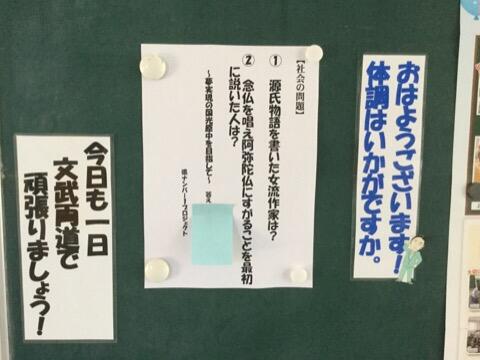 おはようございます!
体調はいかがですか。
【社会の問題】
① 源氏物語を書いた女流作家は?
② 念仏を唱え阿弥陀仏にすがることを最初
に説いた人は?
～夢実現の国光原中を目指して～ 答え
県ナンバー1プロジェクト
今日も一日
文武両道で
頑張りましょう!